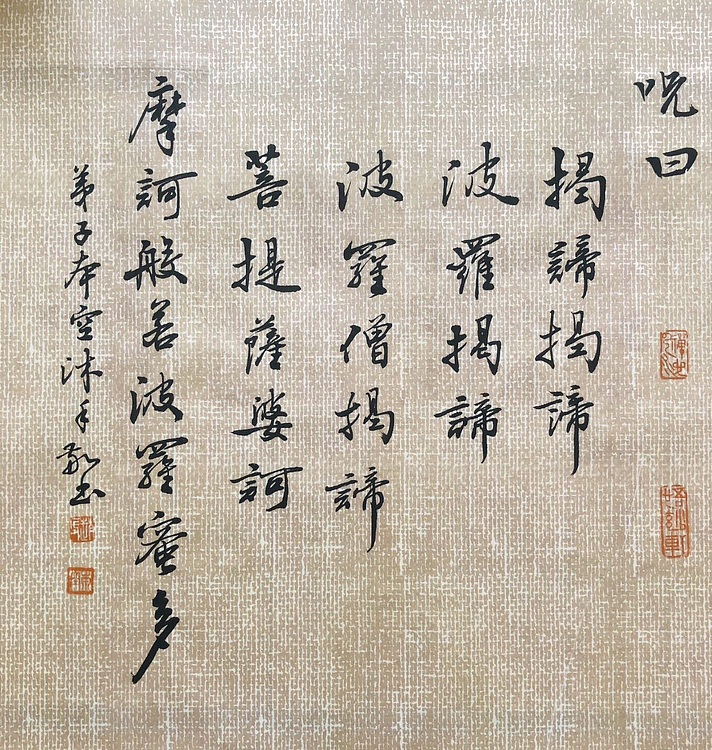 呪曰
揭諦揭諦
波羅揭諦
波羅僧揭諦
菩提薩婆訶
摩訶般若波羅蜜多
弟子本空沐手敬书